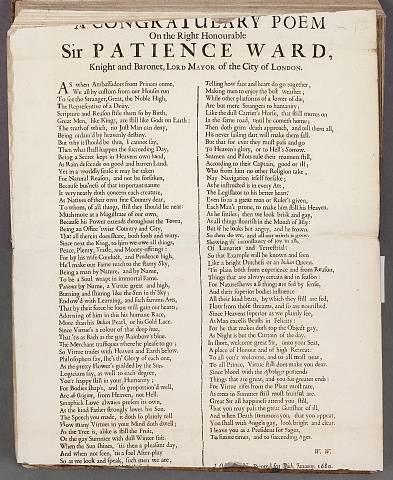 A CONGRATULARY POEM
On the Right Honourable
Sir PATIENCE WARD,
Knight and Baronet, LORD MAYOR of the City of LONDON.
AS when Ambassadors from Princes come,
We all by custom from our Houses run
To see the Stranger, Great, the Noble High,
The Representative of a Deity.
Scripture and Reason stile them so by Birth,
Great Men, like Kings, are still like Gods on Earth:
The truth of which, no Just Man can deny,
Being ordain'd by heavenly destiny.
But why it should be thus, I cannot say,
Then what shall happen the succeeding Day,
Being a Secret kept in Heavens own hand,
As Rain descends on good and barren Land.
Yet in a worldly sense it may be taken
For Natural Reason, and not be forsaken,
Because business of that important nature
It very nearly doth concern each creature,
As Natives of their own fine Country dear,
To whom, of all things, still they should be near:
Much more as a Magistrate of our own,
Because his Power extends throughout the Town,
Being an Office 'twixt Country and City,
That all therein does share, both fools and witty.
Since next the King, to him we owe all things,
Peace, Plenty, Trade, and Money-offerings:
For by his wise Conduct, and Prudence high,
He'l make our Fame reach to the starry Sky.
Being a man by Nature, and by Name,
To be a Soul wrapt in immortal Fame.
Patience by Name, a Virtue great and high,
Burning and shining like the Sun in th' Sky:
Endow'd with Learning, and such famous Arts,
That by their force he soon will gain our hearts;
Adorning of him in this his humane Race,
More than his Indian Pearl, or his Gold Lace.
Since Virtue's a colour of that deep hue,
That 'tis as Rich as the gay Rainbow's blue.
The Merchant trafficques where he please to go;
So Virtue trades with Heaven and Earth below.
Philosophers say, she's th' Glory of each one
As the pretty Flower's gilded by the Sun.
Logicians say, as well to each degree,
You'r happy still in your Humanity;
For Bodies shape, and so proportion'd well,
Are ab Origine, from Heaven, not Hell.
Seraphick Love always prefers its own,
As the kind Father strongly loves his Son.
The Speech you made, it doth so plainly tell
How many Virtues in your Mind doth dwell;
As the Tree is, alike is still the Fruit,
Or the gay Summer with dull Winter suit.
When the Sun shines, 'tis then a pleasant day,
And when not seen, 'tis a foul After-play
So as we look and speak, such men we are,
Telling how face and heart do go together,
Making men to enjoy the best weather;
While other platforms of a lower of die,
Are but mere Strangers to humanity;
Like the dull Carrier's Horse, that still moves on
In the same road, until he cometh home;
Then doth grim death approach, and tell them all,
His never failing dart will make them fall.
But that for ever they must pass and go
To Heaven's glory, or to Hell's Sorrow.
Seamen and Pilots rule their manners still,
According to their Captain, good or ill;
Who from him no other Religion take,
Nay Navigation itself forsake;
As he instructed is in every Art,
The Legislator to his better heart:
Even so as a great man or Ruler's given,
Each Man's prone, to make him still his Heaven.
As he smiles; then we look brisk and gay,
As all things flourish in the Month of May:
But if he looks but angry, and he frown,
So then do we, and all our mirth is gone:
Shewing th' inconstancy of joy in all,
Of Lunaries and Terrestrial:
So that Example will be known and seen
Like a bright Dutchess or an Indian Queen.
'Tis plain both from experience and from Reason,
Things that are always certain and in season:
For Nature shews all things are fed by sense,
And their superior bodies influence
All their kind heat, by which they still are fed,
Flow from those streams, and so are nourished.
Since Heavens superior as we plainly see,
As Man excells Beasts in Felicity:
For he that makes doth top the Object gay,
As Night is but the Curtain of the day.
In short, welcome great Sir, unto your Seat,
A place of Honour and of high Retreat:
To all you'r welcome, and to all most near,
To all Prince, Virtue still does make you dear.
Since blood with the abridger patience
Things that are great, and you for greater ends:
For Virtue rises from the Plant most rare,
As trees in Summer still most fruitful are.
Great Sir all happiness attend you still,
That you may pass the great Comptroller of all,
And when Death summons you, that you appear,
You shall with Angels gay, look bright and clear.
I leave you as a President for Sages,
To future times, and to succeeding Ages.
W. W.
Printed for
January, 1680.